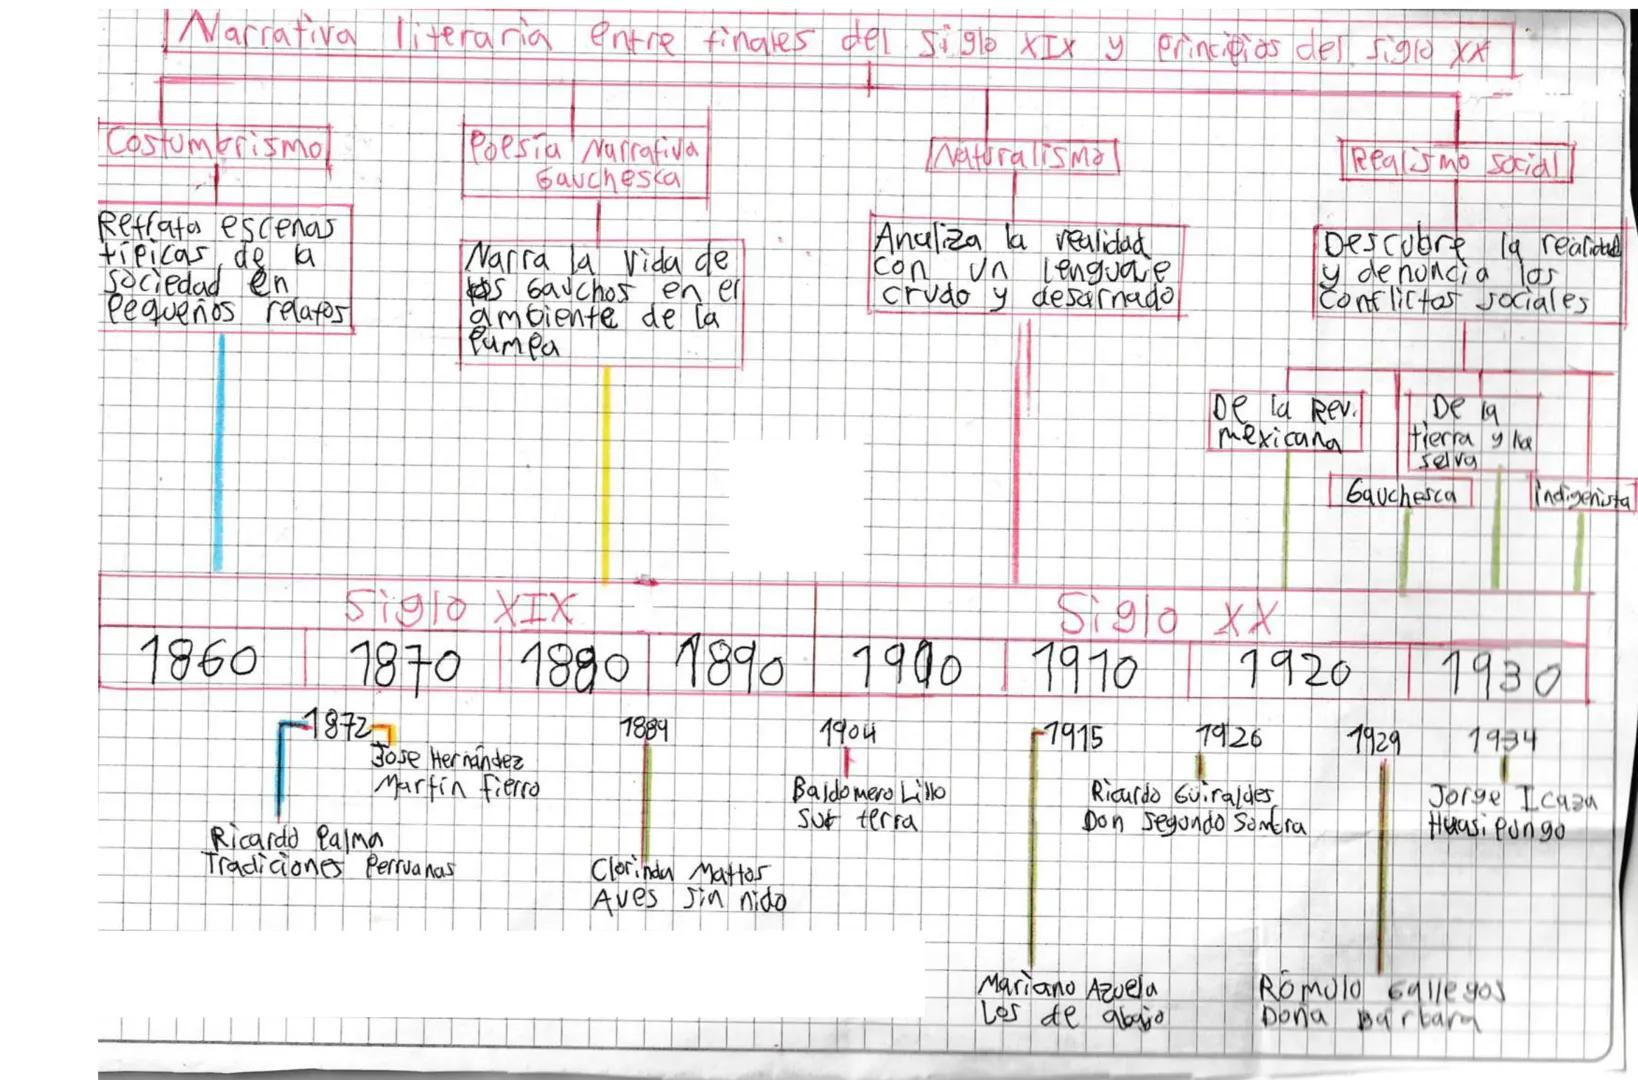 Narrativa literaria entre finales del siglo XIX y principios del siglo XX
Costumbrismo
Retrata escenas
típicas de la
sociedad en
pequeños relatos
Poesía Narrativa
Gauchesca
Narra la vida de
los Gauchos en el
ambiente de la
Pampa
Naturalismo
Analiza la realidad
con un lenguaje
crudo y desarnado
Realismo social
Descubre la realidad
y denuncia los
conflictos sociales
De la Rev.
mexicana
De la
tierra y la
selva
Gauchesca
indigenista
Siglo XIX
Siglo XX
1860 1870 1880 1890 1900 1910 1920 1930
1872
Jose Hernández
Martín fierro
Ricardo Palma
Tradiciones Perruanas
1889
Clorinda Mattos
Aves sin nido
1904
Baldomero Lillo
Sub terra
1915
Mariano Azuela
Los de abajo
1926
Ricardo Guiraldes
Don Segundo Sombra
1929
Rómulo Gallegos
Doña Barbara
1934
Jorge Icaza
Huasipungo